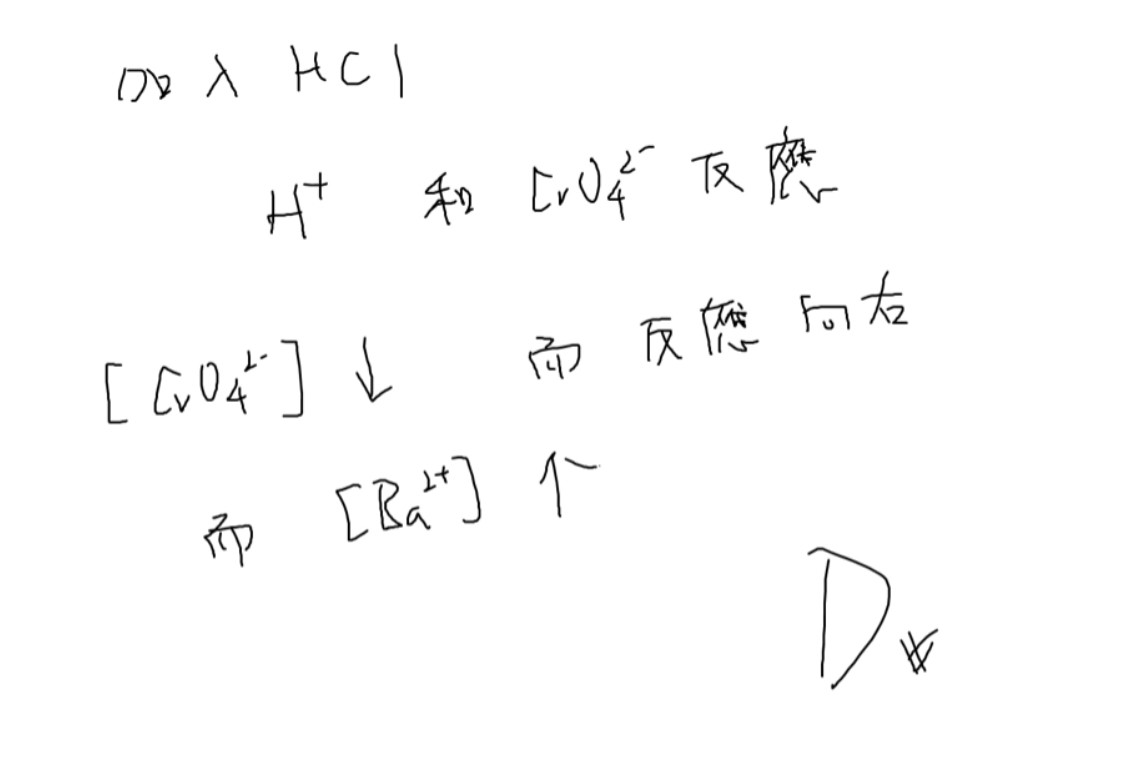 加入 HCl
H⁺ 和 CrO₄²⁻ 反應
[CrO₄²⁻] ↓ 而 反應 向右
而 [Ba²⁺] ↑
D